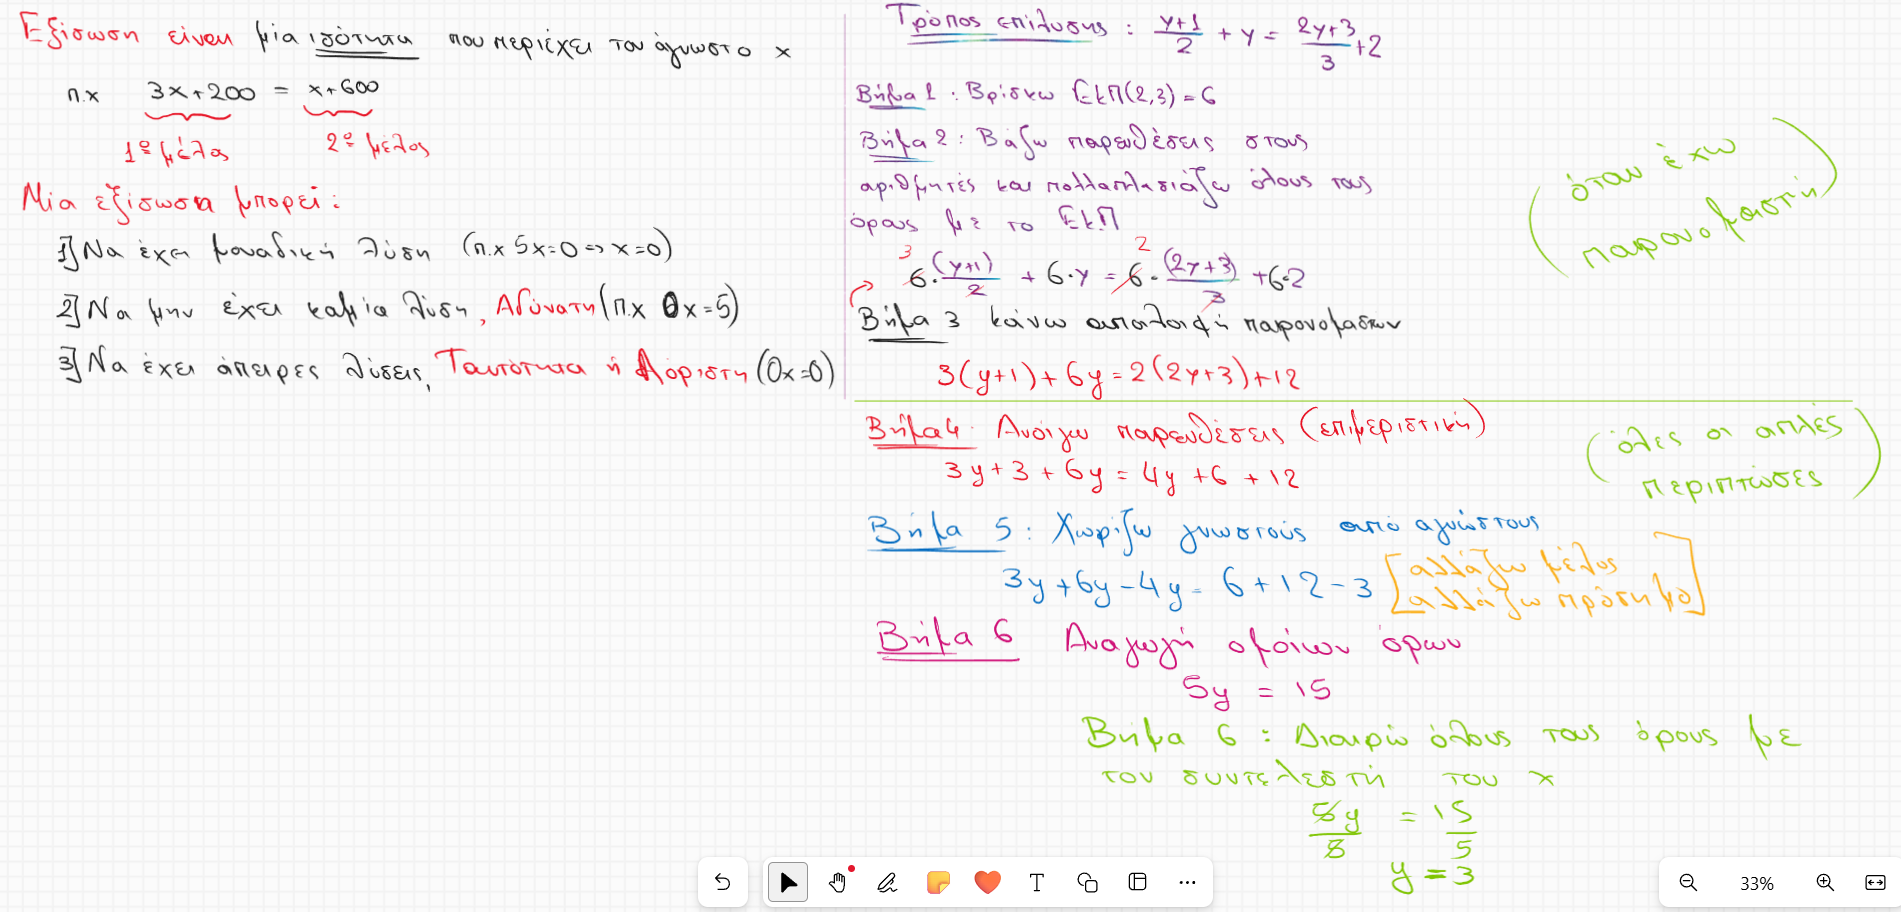 Εξίσωση είναι μία ισότητα που περιέχει τον άγνωστο x
π.x 3x+200 = x+600
1º μέλος 2º μέλος
Μία εξίσωση μπορεί:
1] Να έχει μοναδική λύση (π.x 5x=0 => x=0)
2] Να μην έχει καμία λύση, Αδύνατη (π.x 0x=5)
3] Να έχει άπειρες λύσεις, Ταυτότητα ή Αόριστη (0x=0)
Τρόπος επίλυσης : y+1/2 + y = 2y+3/3 + 2
Βήμα 1 : Βρίσκω ΕΚΠ(2,3) = 6
Βήμα 2 : Βάζω παρενθέσεις στους
αριθμητές και πολλαπλασιάζω όλους τους
όρους με το ΕΚΠ
3 2
6·(y+1)/2 + 6·y = 6·(2y+3)/3 + 6·2
(όταν έχω
παρονομαστή)
Βήμα 3 κάνω απαλοιφή παρονομαστων
3(y+1)+6y=2(2y+3)+12
Βήμα 4: Ανοίγω παρενθέσεις (επιμεριστική)
3y+3+6y=4y+6+12
(όλες οι απλές
περιπτώσες)
Βήμα 5 : Χωρίζω γνωστούς από αγνώστους
3y+6y-4y= 6+12-3
[αλλάζω μέλος
αλλάζω πρόσημο]
Βήμα 6 Αναγωγή ομοίων όρων
5y = 15
Βήμα 6 : Διαιρώ όλους τους όρους με
τον συντελεστή του x
5y/5 = 15/5
y = 3
33%